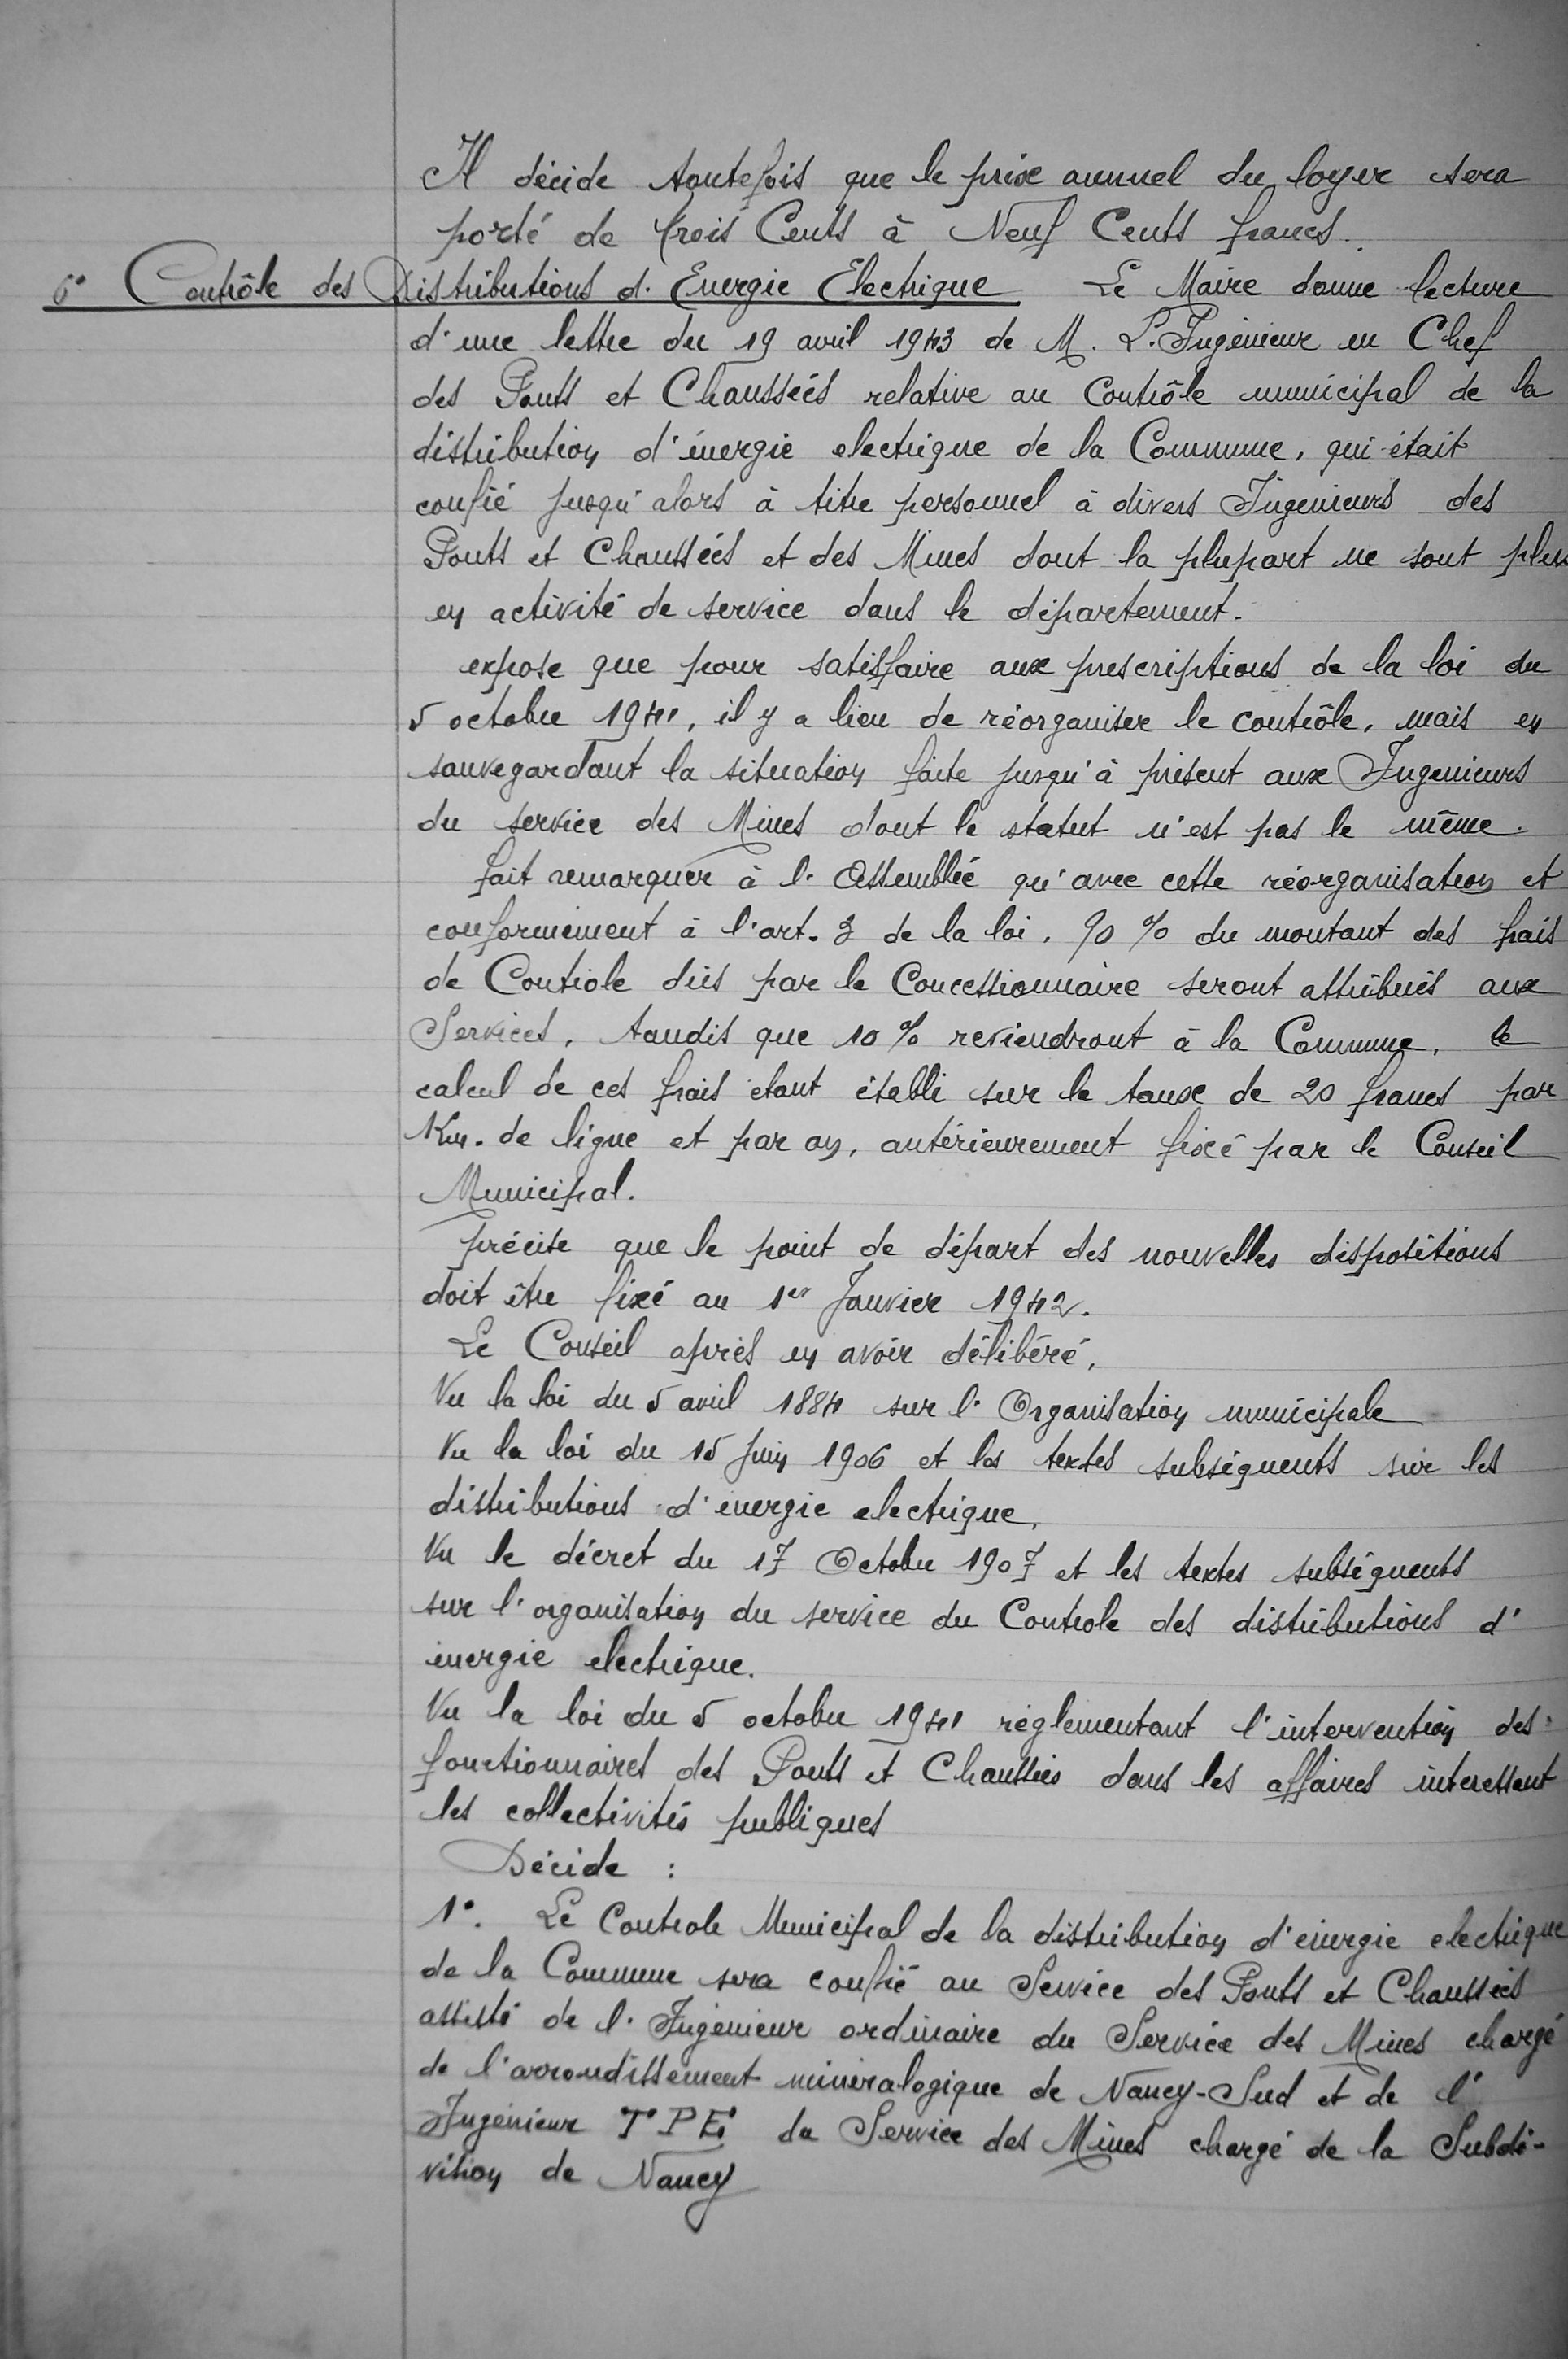 Il décide toutefois que le prix annuel du loyer sera
porté de trois Cents à Neuf Cents francs.
6° Contrôle des Distributions d'Energie Electrique Le Maire donne lecture
d'une lettre du 19 avril 1943 de M. L'Ingénieur en Chef
des Ponts et Chaussées relative au Contrôle municipal de la
distribution d'énergie electrique de la Commune, qui était
confié jusqu'alors à titre personnel à divers Ingenieurs des
Ponts et Chaussées et des Mines dont la plupart ne sont plus
en activité de service dans le département.
expose que pour satisfaire aux prescriptions de la loi du
5 octobre 1941, il y a lieu de réorganiser le contrôle, mais en
sauvegardant la situation faite jusqu'à présent aux Ingenieurs
du service des Mines dont le statut n'est pas le même.
fait remarquer à l'Assemblée qu'avec cette réorganisation et
conformément à l'art. 3 de la loi, 90 % du montant des frais
de Controle dûs par le Concessionnaire seront attribués aux
Services, tandis que 10 % reviendront à la Commune, le
calcul de ces frais etant établi sur le taux de 20 francs par
Km. de ligne et par an, antérieurement fixé par le Conseil
Municipal.
précise que le point de départ des nouvelles dispositions
doit être fixé au 1er Janvier 1942.
Le Conseil après en avoir délibéré,
Vu la loi du 5 avril 1884 sur l'Organisation municipale
Vu la loi du 15 juin 1906 et les textes subséquents sur les
distributions d'énergie electrique,
Vu le décret du 17 Octobre 1907 et les textes subséquents
sur l'organisation du service du Controle des distributions d'
énergie electrique.
Vu la loi du 5 octobre 1941 réglementant l'intervention des
fonctionnaires des Ponts et Chaussées dans les affaires interessant
les collectivités publiques
Décide :
1°. Le Controle Municipal de la distribution d'énergie electrique
de la Commune sera confié au Service des Ponts et Chaussées
assisté de l'Ingénieur ordinaire du Service des Mines chargé
de l'arrondissement minéralogique de Nancy-Sud et de l'
Ingénieur T P E du Service des Mines chargé de la Subdi-
vision de Nancy